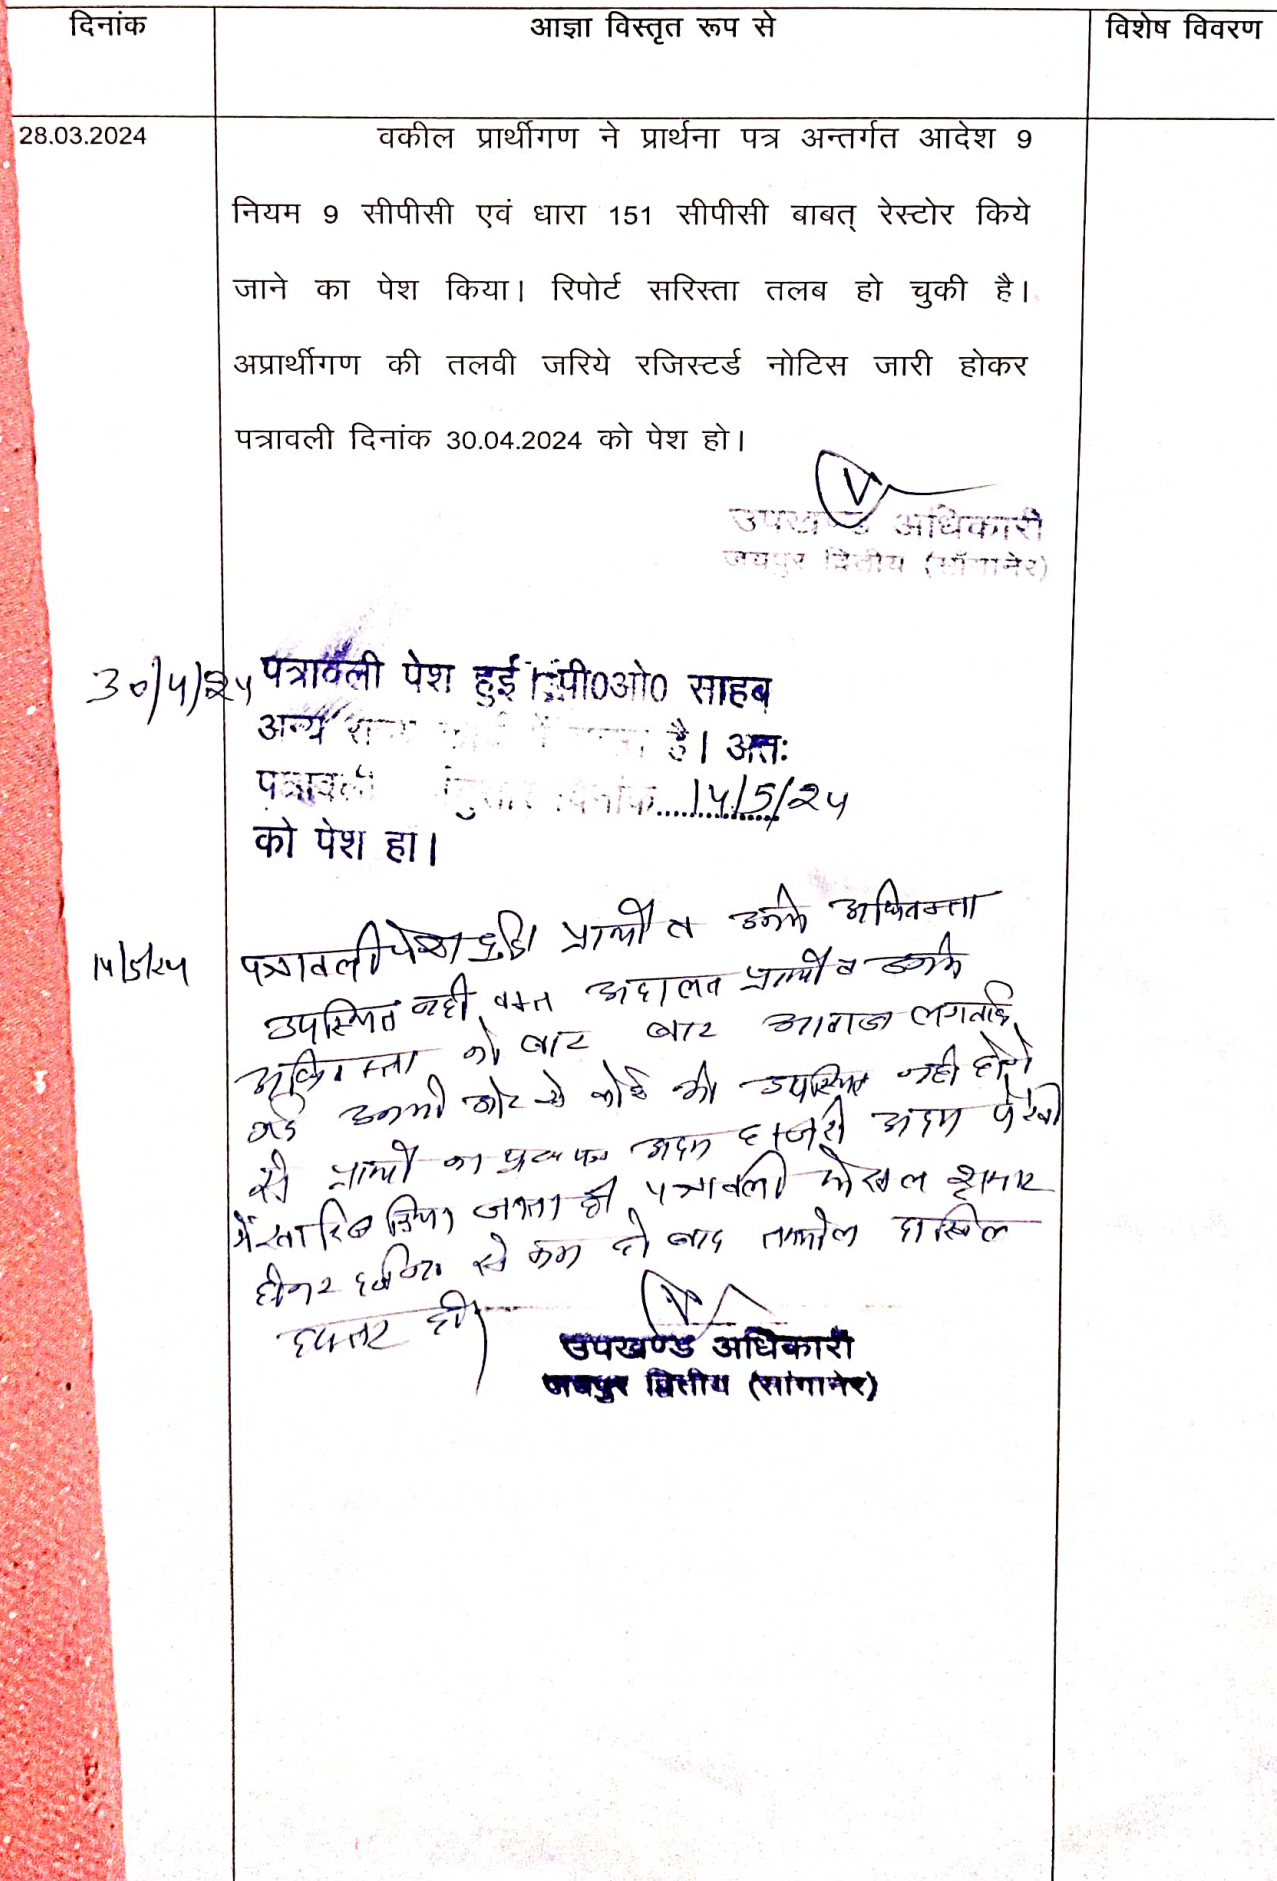 दिनांक आज्ञा विस्तृत रूप से विशेष विवरण
28.03.2024 वकील प्रार्थीगण ने प्रार्थना पत्र अन्तर्गत आदेश 9
नियम 9 सीपीसी एवं धारा 151 सीपीसी बाबत् रेस्टोर किये
जाने का पेश किया। रिपोर्ट सरिस्ता तलब हो चुकी है।
अप्रार्थीगण की तलवी जरिये रजिस्टर्ड नोटिस जारी होकर
पत्रावली दिनांक 30.04.2024 को पेश हो।
उपखण्ड अधिकारी
जयपुर द्वितीय (साँगानेर)
30/4/24 पत्रावली पेश हुई। पी0ओ0 साहब
अन्य है। अतः
पत्रावली दिनांक 14/5/24
को पेश हो।
14/5/24 पत्रावली पेश हुई। प्रार्थी व उनके अधिवक्ता
उपस्थित नही, वक्त अदालत प्रार्थी व उनके
अधिवक्ता को बार बार आवाज लगवाई
गई उनकी ओर से कोई भी उपस्थित नही होने
से प्रार्थी का अदम हाजरी अदम पैरवी
में खारिज किया जाता है। पत्रावली फैसल शुमार
होकर से कम हो बाद तकमील दाखिल
दफ्तर हो।
उपखण्ड अधिकारी
जयपुर द्वितीय (सांगानेर)